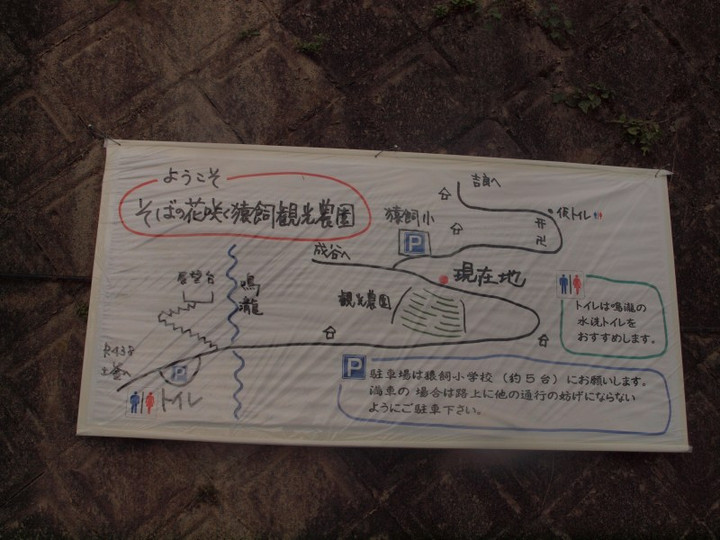 ようこそ
そばの花咲く猿飼観光農園
吉良へ
仮トイレ
猿飼小
P
卍
成谷へ
現在地
観光農園
展望台
鳴瀧
トイレは鳴瀧の
水洗トイレを
おすすめします。
P
トイレ
P 駐車場は猿飼小学校(約5台)にお願いします。
満車の場合は路上に他の通行の妨げにならない
ようにご駐車下さい。